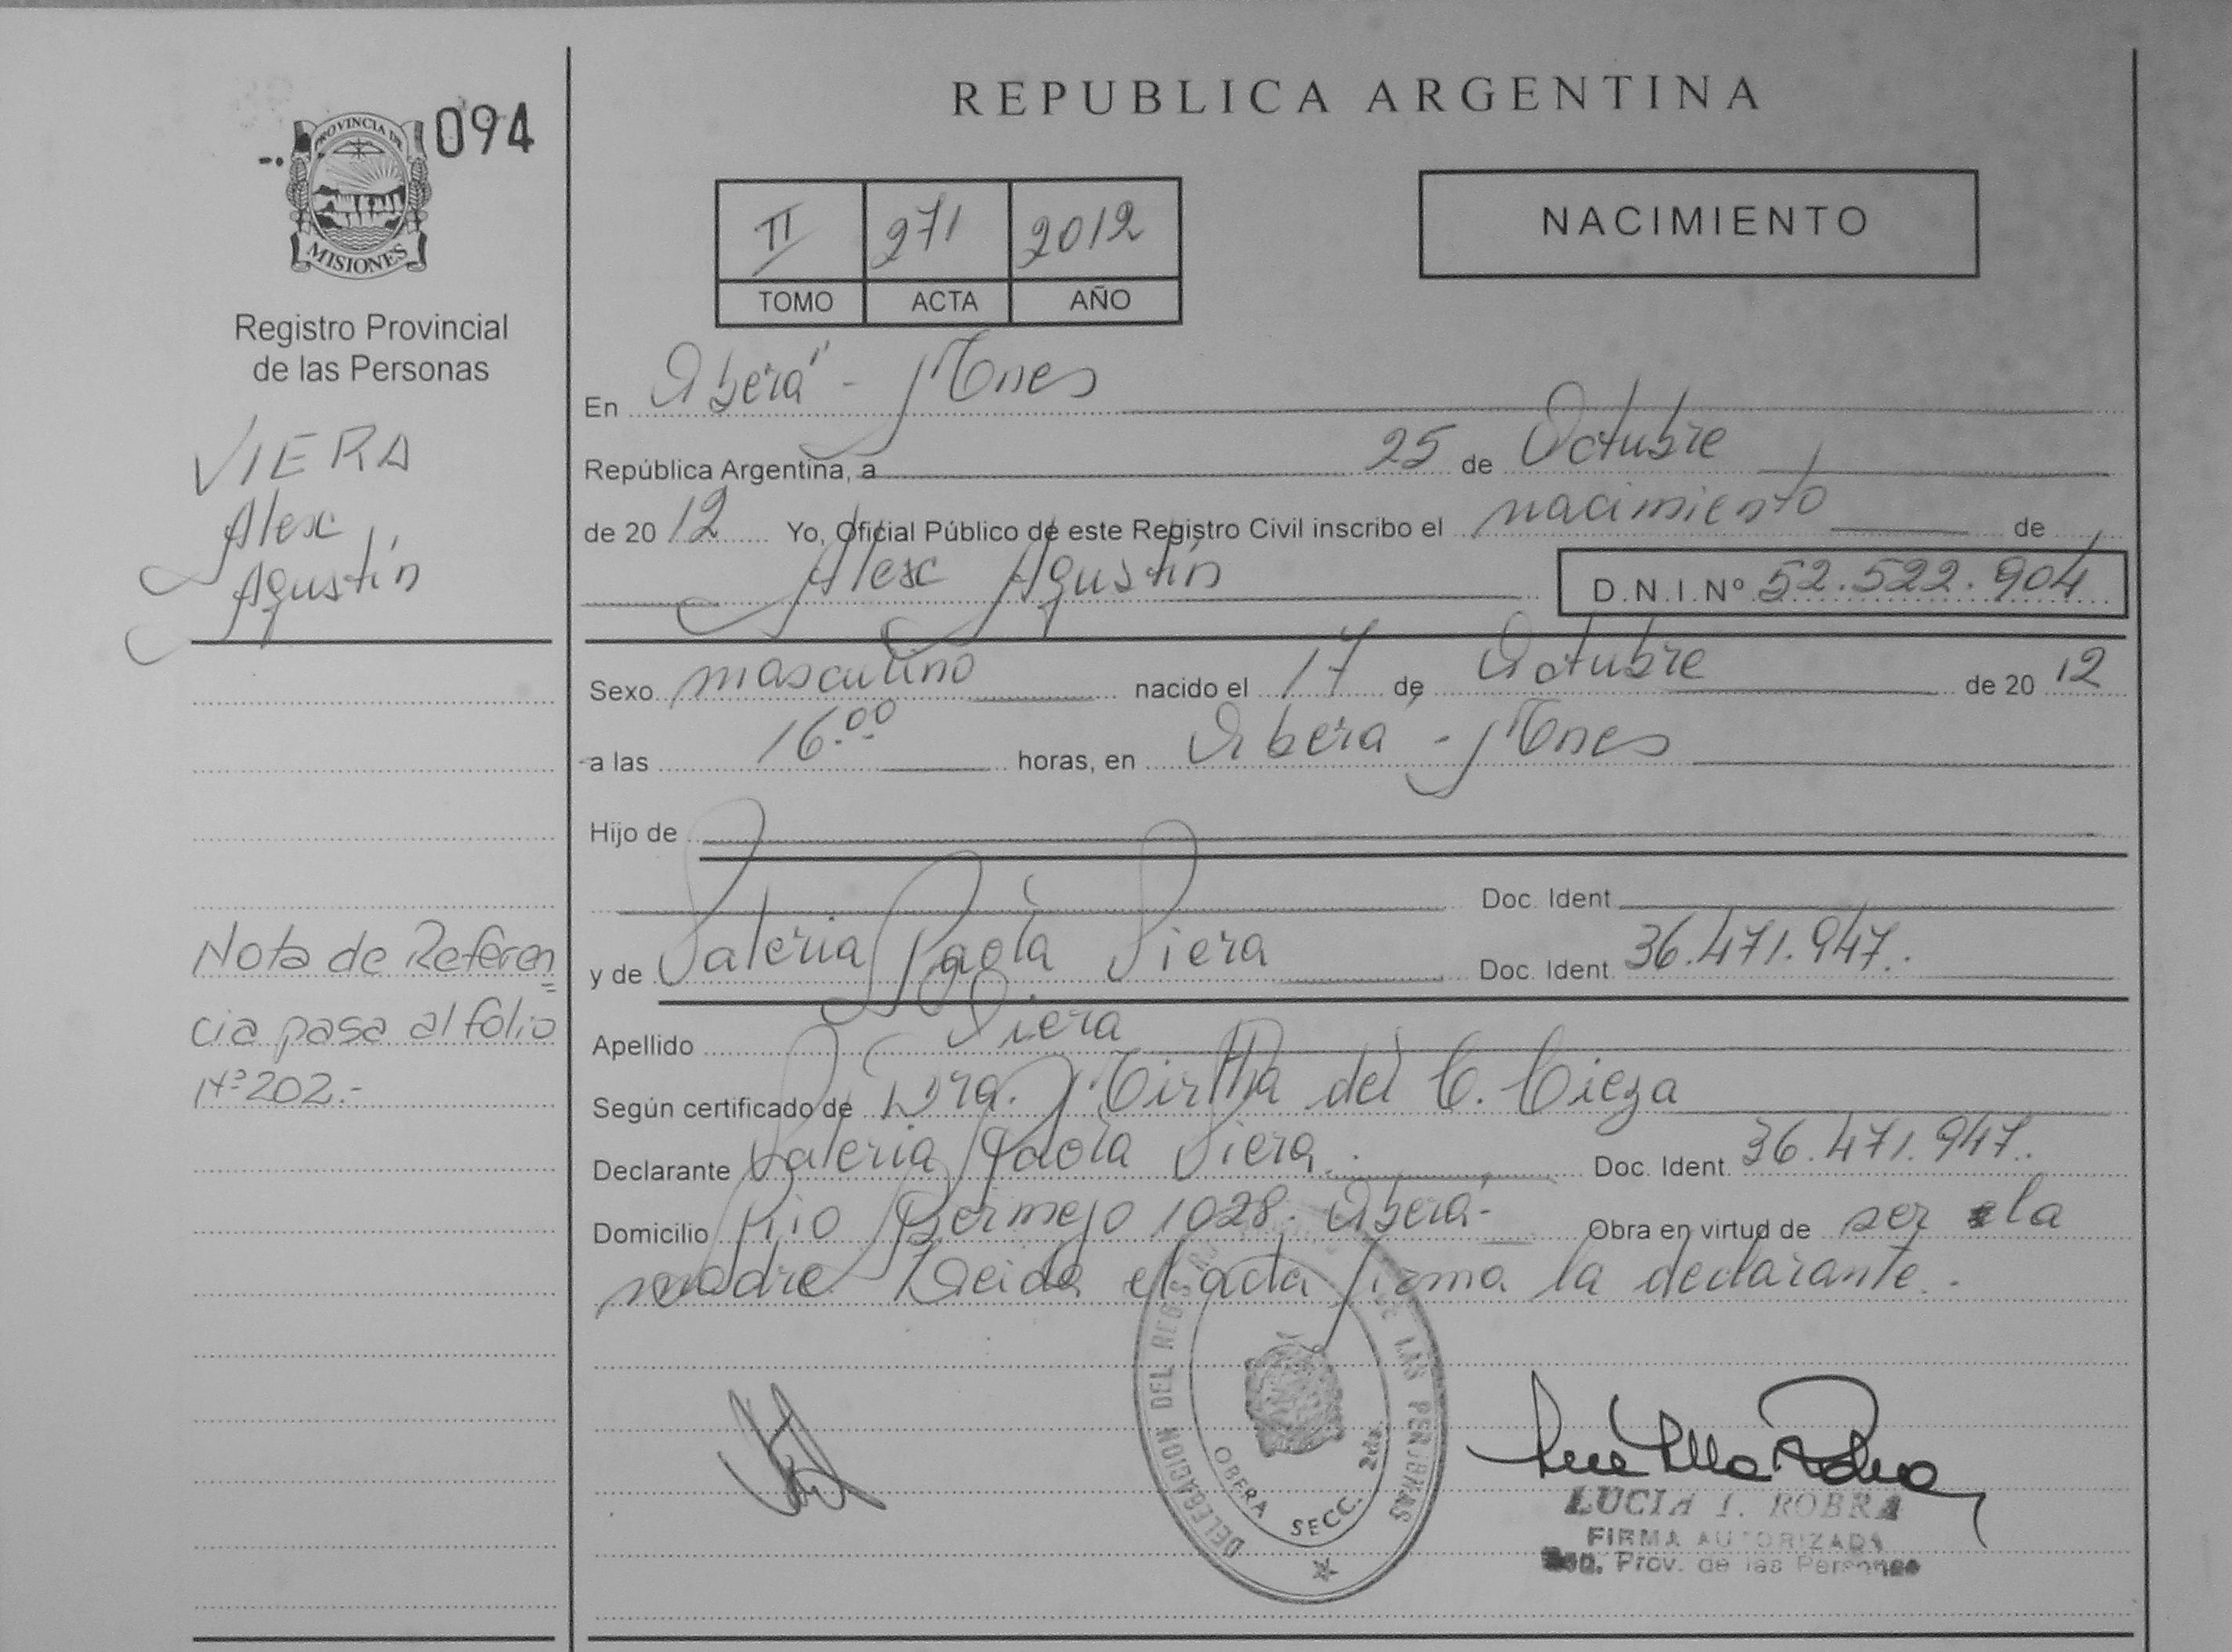 REPUBLICA ARGENTINA
094
PROVINCIA DE
MISIONES
Registro Provincial
de las Personas
VIERA
Alex
Agustín
Nota de Referen
cia pasa al folio
Nº 202.-
II 271 2012
TOMO ACTA AÑO
NACIMIENTO
En Oberá - Mnes
República Argentina, a 25 de Octubre
de 20 12 Yo, Oficial Público de este Registro Civil inscribo el nacimiento de
Alex Agustín D.N.I.Nº 52.522.904
Sexo masculino nacido el 17 de Octubre de 20 12
a las 16.00 horas, en Oberá - Mnes
Hijo de
Doc. Ident
y de Valeria Paola Viera Doc. Ident. 36.471.947.
Apellido Viera
Según certificado de Dra. Mirtha del C. Cieza
Declarante Valeria Paola Viera. Doc. Ident. 36.471.947.
Domicilio Río Bermejo 1028. Oberá- Obra en virtud de ser la
madre. Leida el acta firma la declarante.
DELEGACION DEL REGISTRO DE LAS PERSONAS
OBERA SECC. 2da.
LUCIA I. ROBRA
FIRMA AUTORIZADA
Reg. Prov. de las Personas